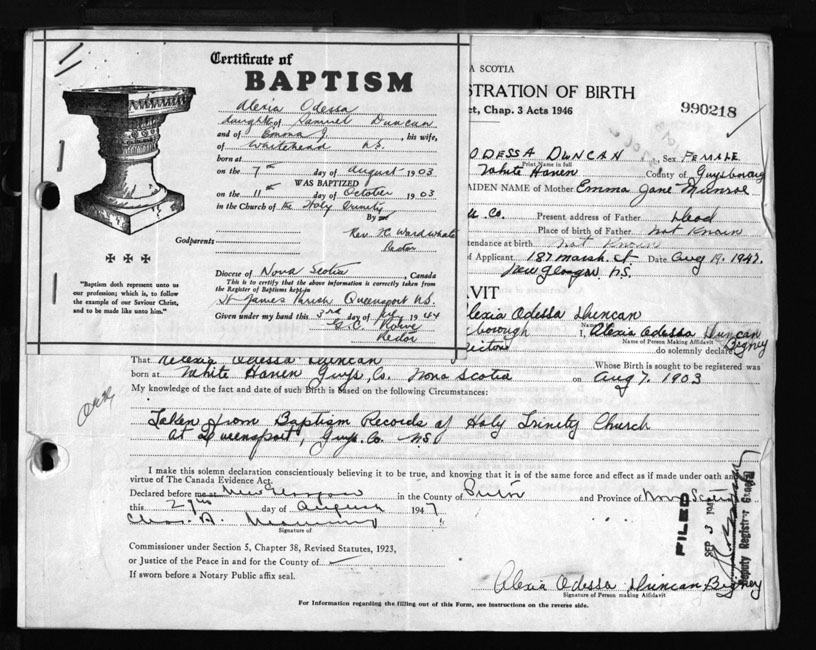 Certificate of
BAPTISM
Alexia Odessa
daught of Samuel Duncan
and of Emma J. , his wife,
of Whitehead N.S.
born at
on the 7th day of August 1903
WAS BAPTIZED
on the 11th day of October 1903
in the Church of the Holy Trinity
By
Rev. Ward
Rector
Godparents
Diocese of Nova Scotia, Canada
This is to certify that the above information is correctly taken from
the Register of Baptisms kept in
St James Parish Queensport N.S.
Given under my hand this 3rd day of 1944
G.C. Rowe
Rector
"Baptism doth represent unto us
our profession; which is, to follow
the example of our Saviour Christ,
and to be made like unto him."
A SCOTIA
STRATION OF BIRTH
ct, Chap. 3 Acts 1946
990218
ODESSA DUNCAN Sex FEMALE
Print Name in full
White Haven County of Guysborough
AIDEN NAME of Mother Emma Jane Munroe
Co. Present address of Father Dead
Place of birth of Father Not Known
ttendance at birth Not Known
of Applicant 187 Marsh St Date Aug 19, 1947.
New Glasgow N.S.
AVIT
Alexia Odessa Duncan
borough I, Alexia Odessa Duncan
Name of Person Making Affidavit
Bigney
Pictou do solemnly declare
That Alexia Odessa Duncan Whose Birth is sought to be registered was
born at White Haven Guys. Co. Nova Scotia on Aug 7. 1903
My knowledge of the fact and date of such Birth is based on the following Circumstances:
Taken from Baptism Records of Holy Trinity Church
at Queensport, Guys. Co. N.S.
I make this solemn declaration conscientiously believing it to be true, and knowing that it is of the same force and effect as if made under oath and
virtue of The Canada Evidence Act.
Declared before me at New Glasgow in the County of Pictou and Province of Nova Scotia
this 29th day of August 1947
Chas. A.
Signature of
Commissioner under Section 5, Chapter 38, Revised Statutes, 1923,
or Justice of the Peace in and for the County of
If sworn before a Notary Public affix seal.
FILED
SEP 3 1947
Deputy Registrar General
Alexia Odessa Duncan Bigney
Signature of Person making Affidavit
For Information regarding the filling out of this Form, see instructions on the reverse side.